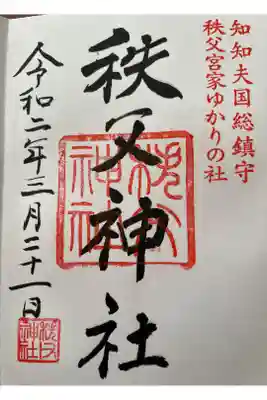 知知夫国総鎮守
秩父宮家ゆかりの社
秩父神社
令和二年三月二十一日
秩父
神社
秩父
神社